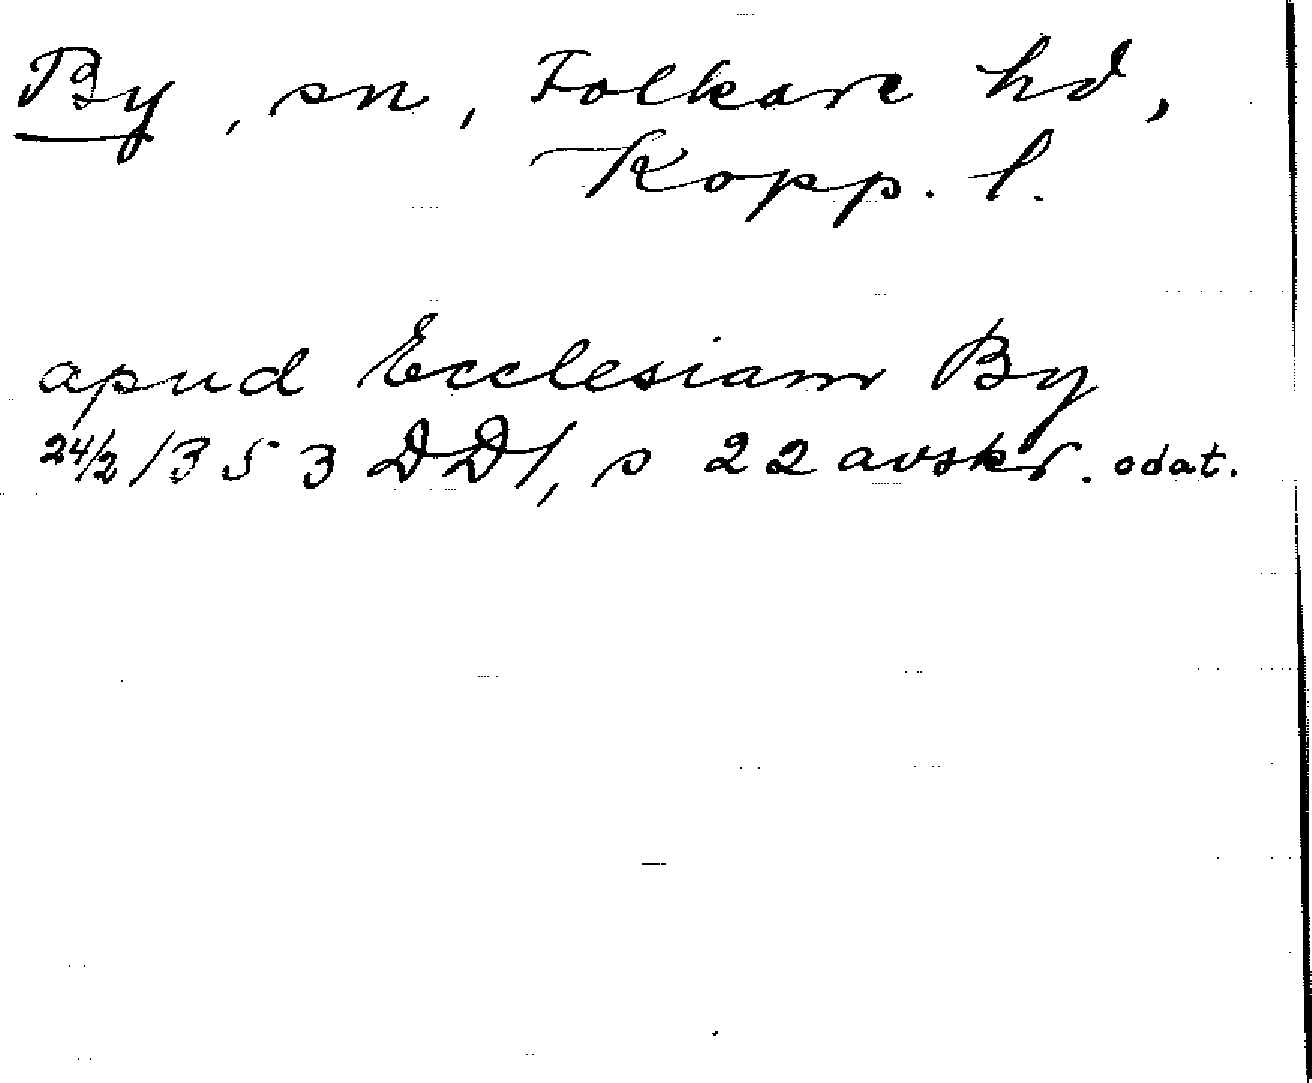 By, sn, Folkare hd,
Kopp. l.
apud Ecclesiam By
24/2 1353 DD1, s 22 avskr. odat.